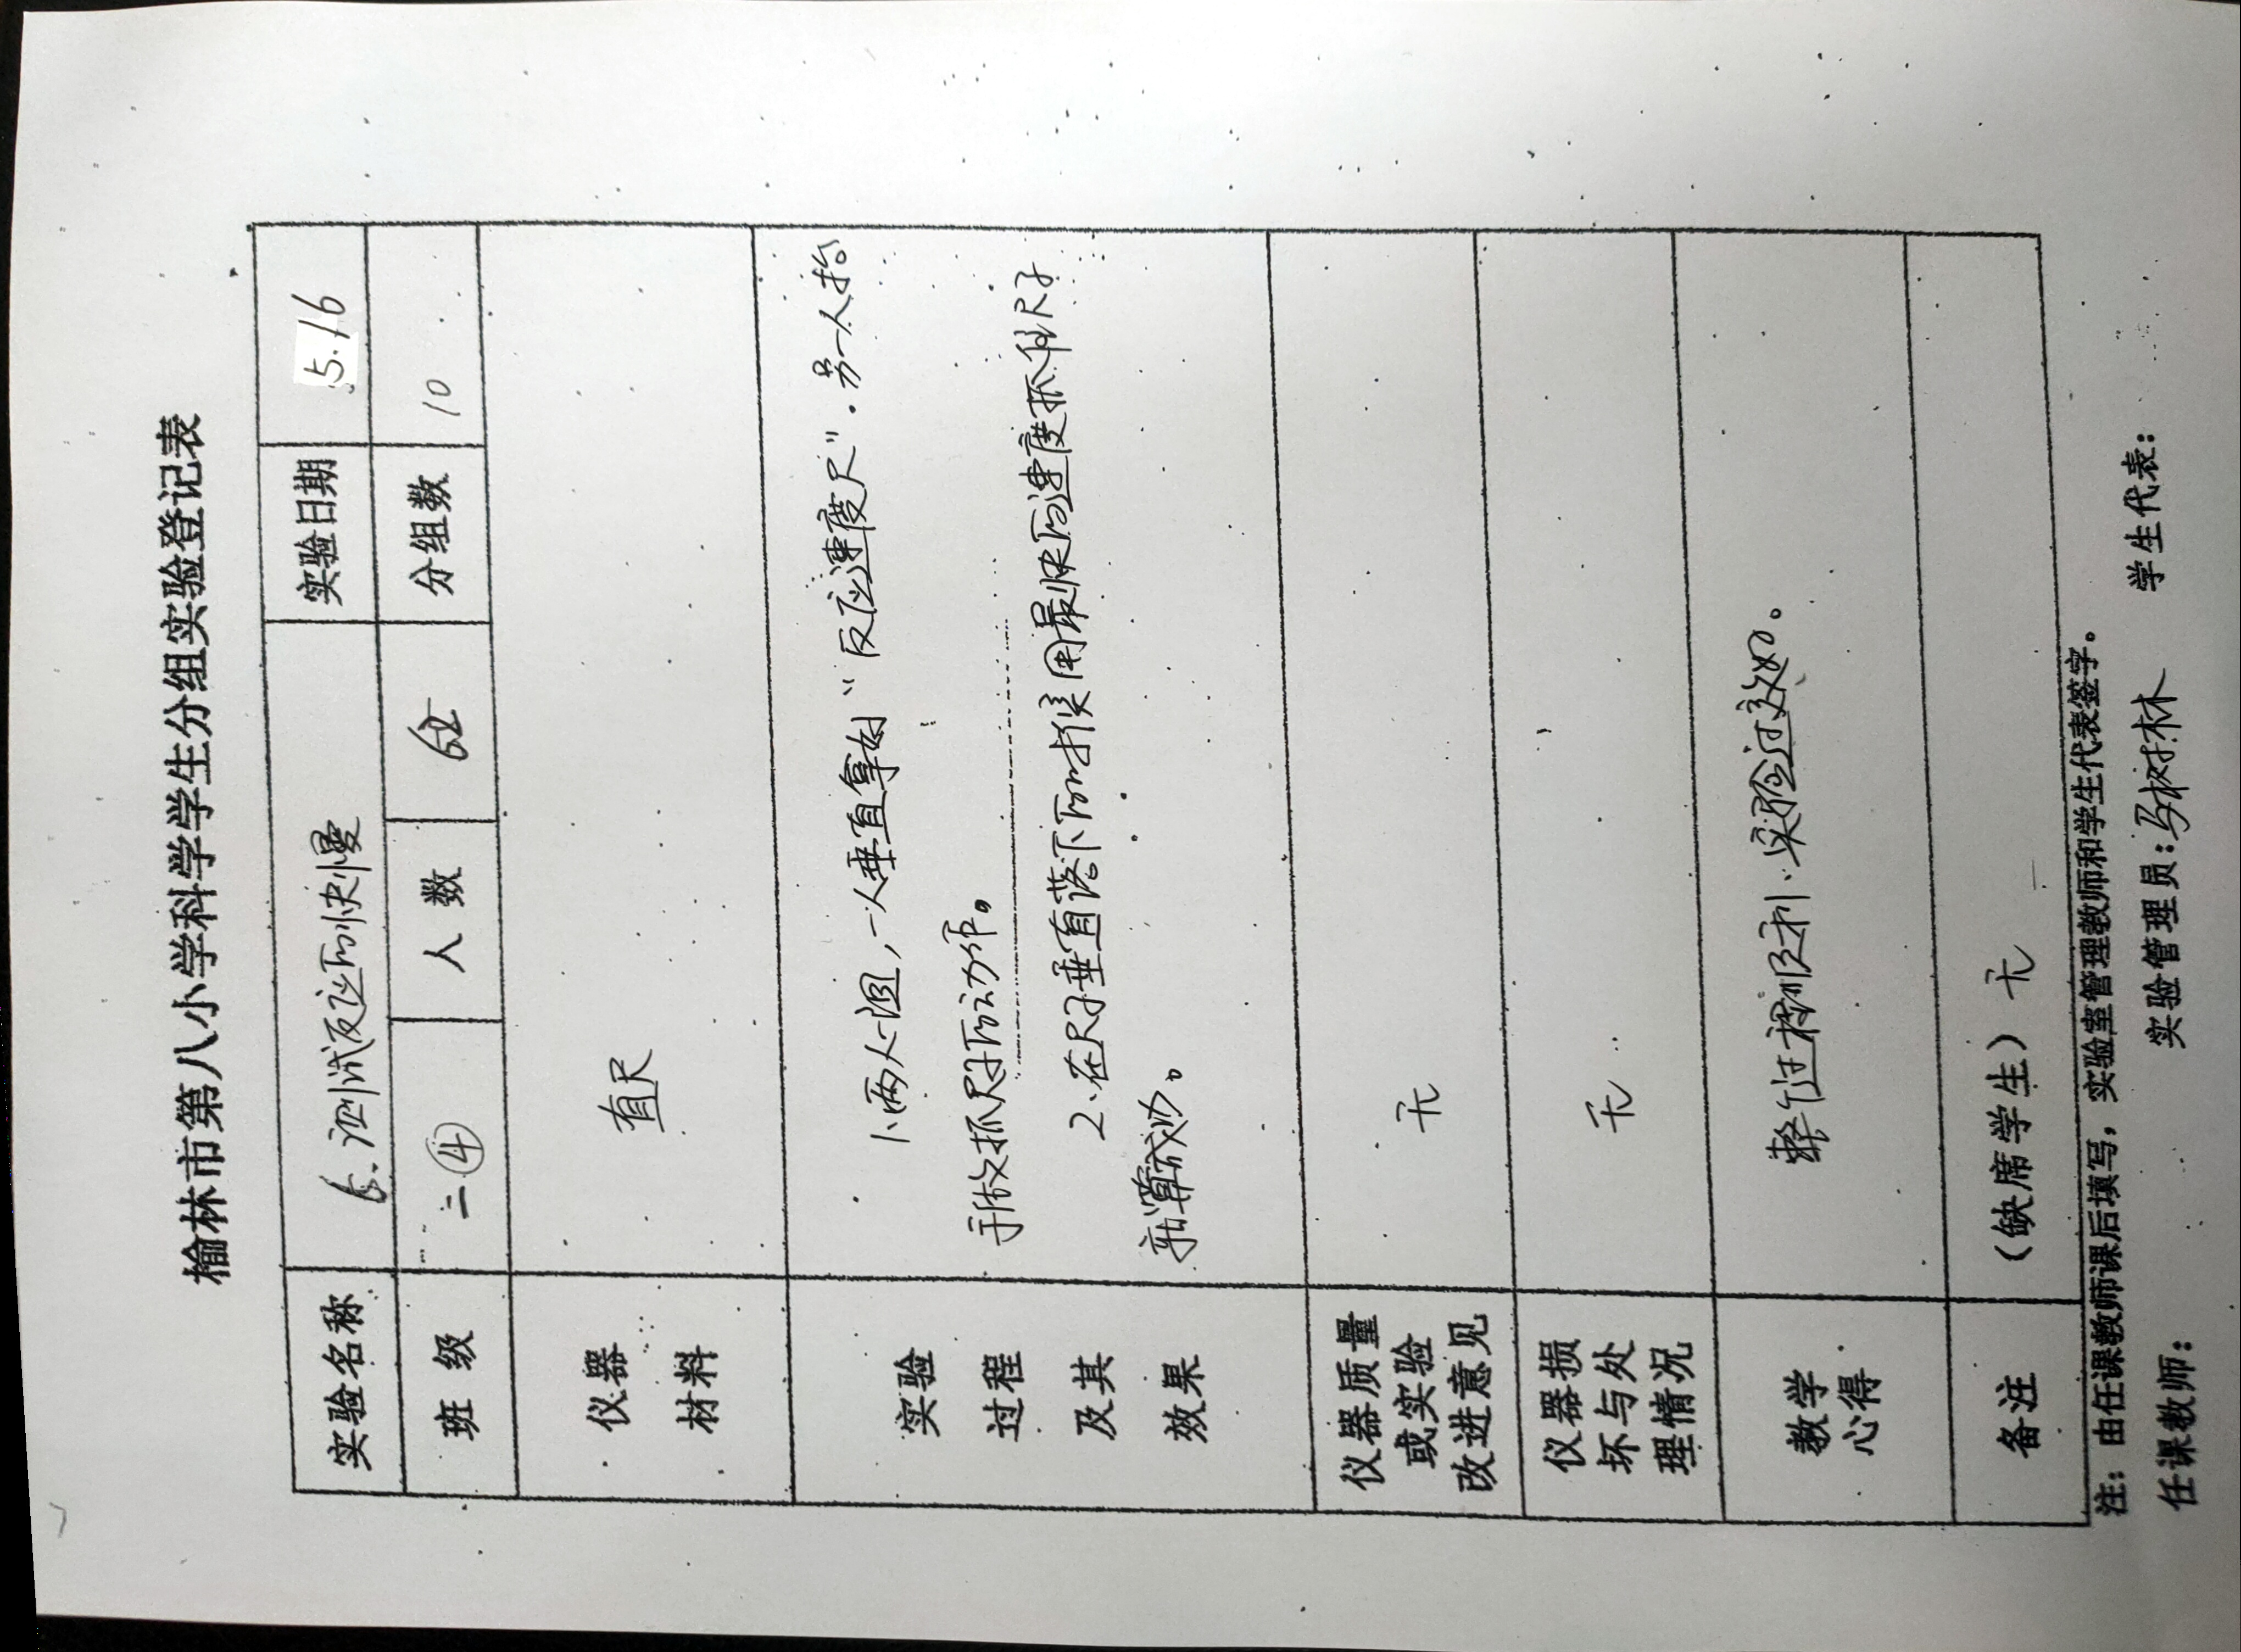 榆林市第八小学科学学生分组实验登记表
实验名称 6.测试反应的快慢 实验日期 5.16
班 级 二④ 人 数 62 分组数 10
仪器
材料
直尺
实验
过程
及其
效果
1.两人一组,一人垂直拿好“反应速度尺”.另一人抬
手做抓尺子的动作。
2.在尺子垂直落下的时候用最快的速度抓住尺子
就算成功。
仪器质量
或实验
改进意见
无
仪器损
坏与处
理情况
无
教学
心得
整个过程顺利.实验过
备注 (缺席学生) 无
注:由任课教师课后填写,实验室管理教师和学生代表签字。
任课教师: 实验管理员:马树林 学生代表: